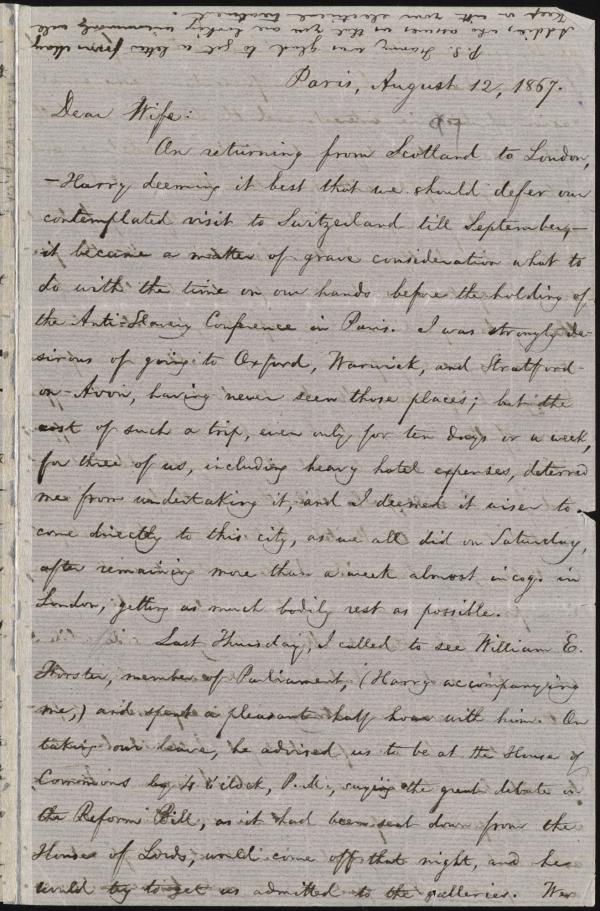 P.S. Fanny was glad to get a letter from Mary
Addie, who assures us that you are looking uncommonly well
Keep on with your electrical treatment.
Paris, August 12, 1867.
Dear Wife:
On returning from Scotland to London,
—Harry deeming it best that we should defer our
contemplated visit to Switzerland till September,—
it became a matter of grave consideration what to
do with the time on our hands before the holding of
the Anti-Slavery Conference in Paris. I was strongly de-
sirous of going to Oxford, Warwick, and Stratford-
on-Avon, having never seen those places; but the
cost of such a trip, even only for ten days or a week,
for three of us, including heavy hotel expenses, deterred
me from undertaking it, and I deemed it wiser to
come directly to this city, as we all did on Saturday,
after remaining more than a week almost incog. in
London, getting as much bodily rest as possible.
Last Thursday, I called to see William E.
Forster, member of Parliament, (Harry accompanying
me,) and spent a pleasant half hour with him. On
taking our leave, he advised us to be at the House of
Commons by o'clock, P.M., saying the great debate on
the Reform Bill, as it had been sent down from the
House of Lords, would come off that night, and he
would try to get us admitted to the galleries. We